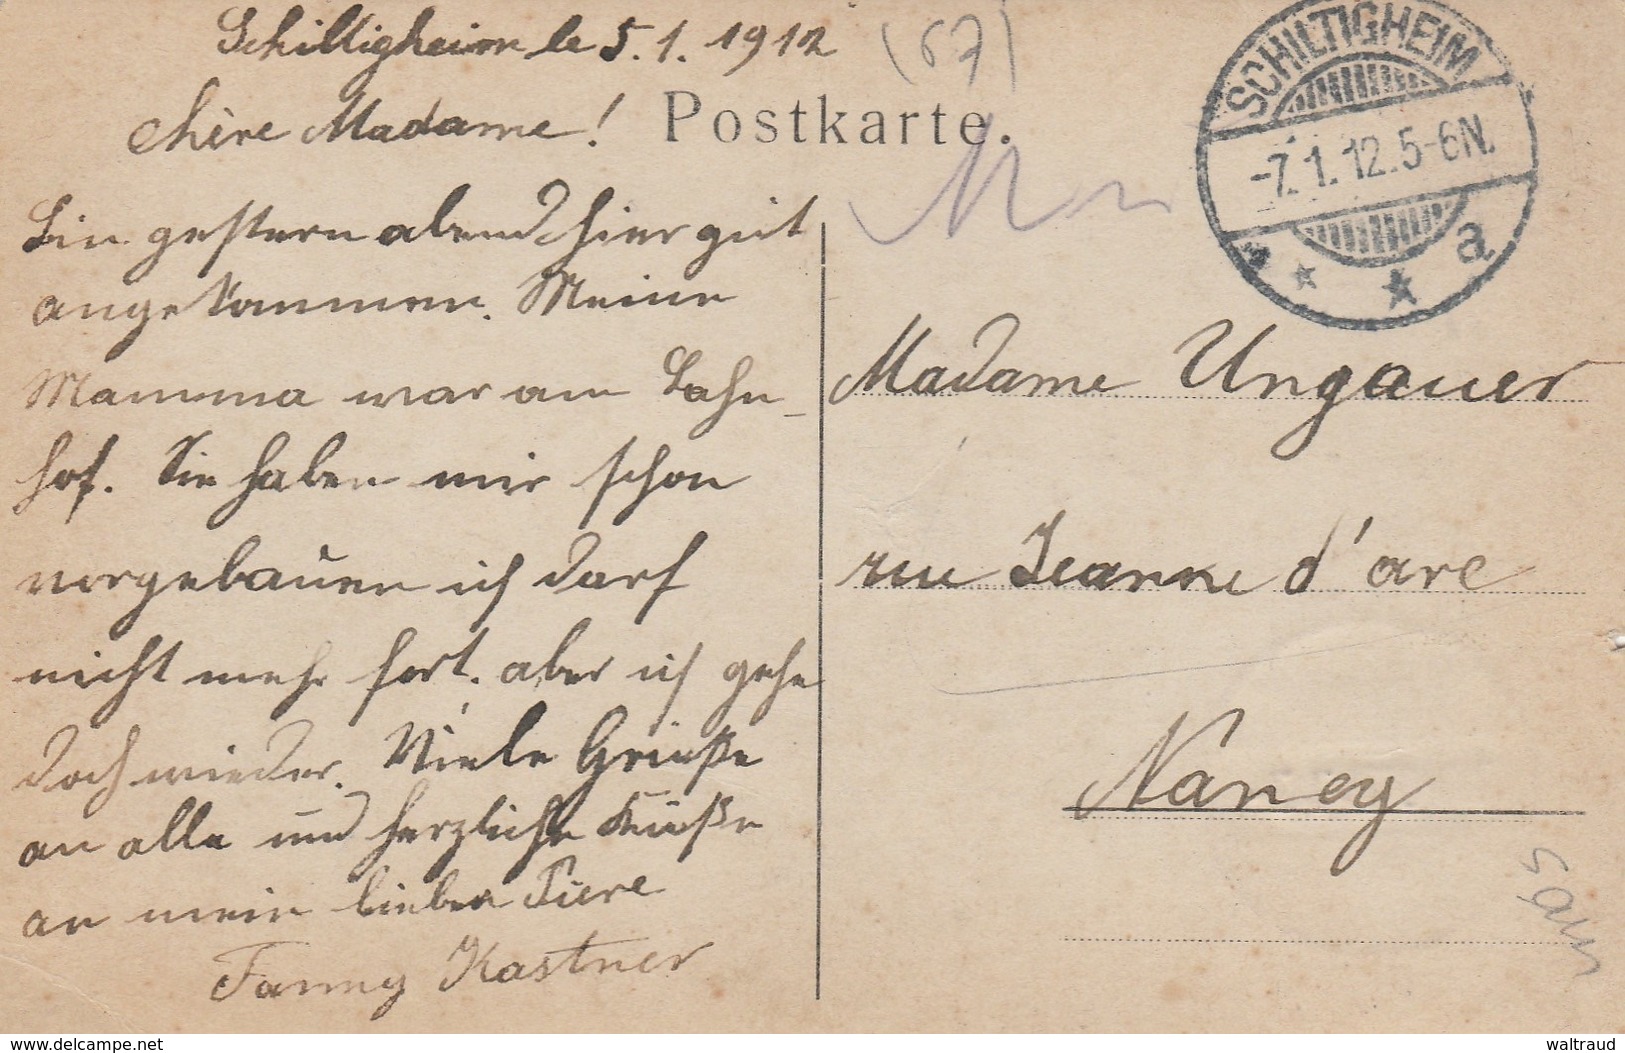 Schilligheim le 5.1.1912
(67)
chère Madame!
Postkarte.
SCHILTIGHEIM
-7.1.12.5-6N.
a
Bin gestern abend hier gut
angekommen. Meine
Mamma war am Bahn-
hof. Sie haben mir schon
vorgebauen ich darf
nicht mehr fort. aber ich gehe
doch wieder. Viele Grüße
an alle und herzliche Küße
an mein lieber Piere
Fanny Kastner
Madame Ungauer
rue Jeanne d'arc
Nancy
www.delcampe.net
waltraud